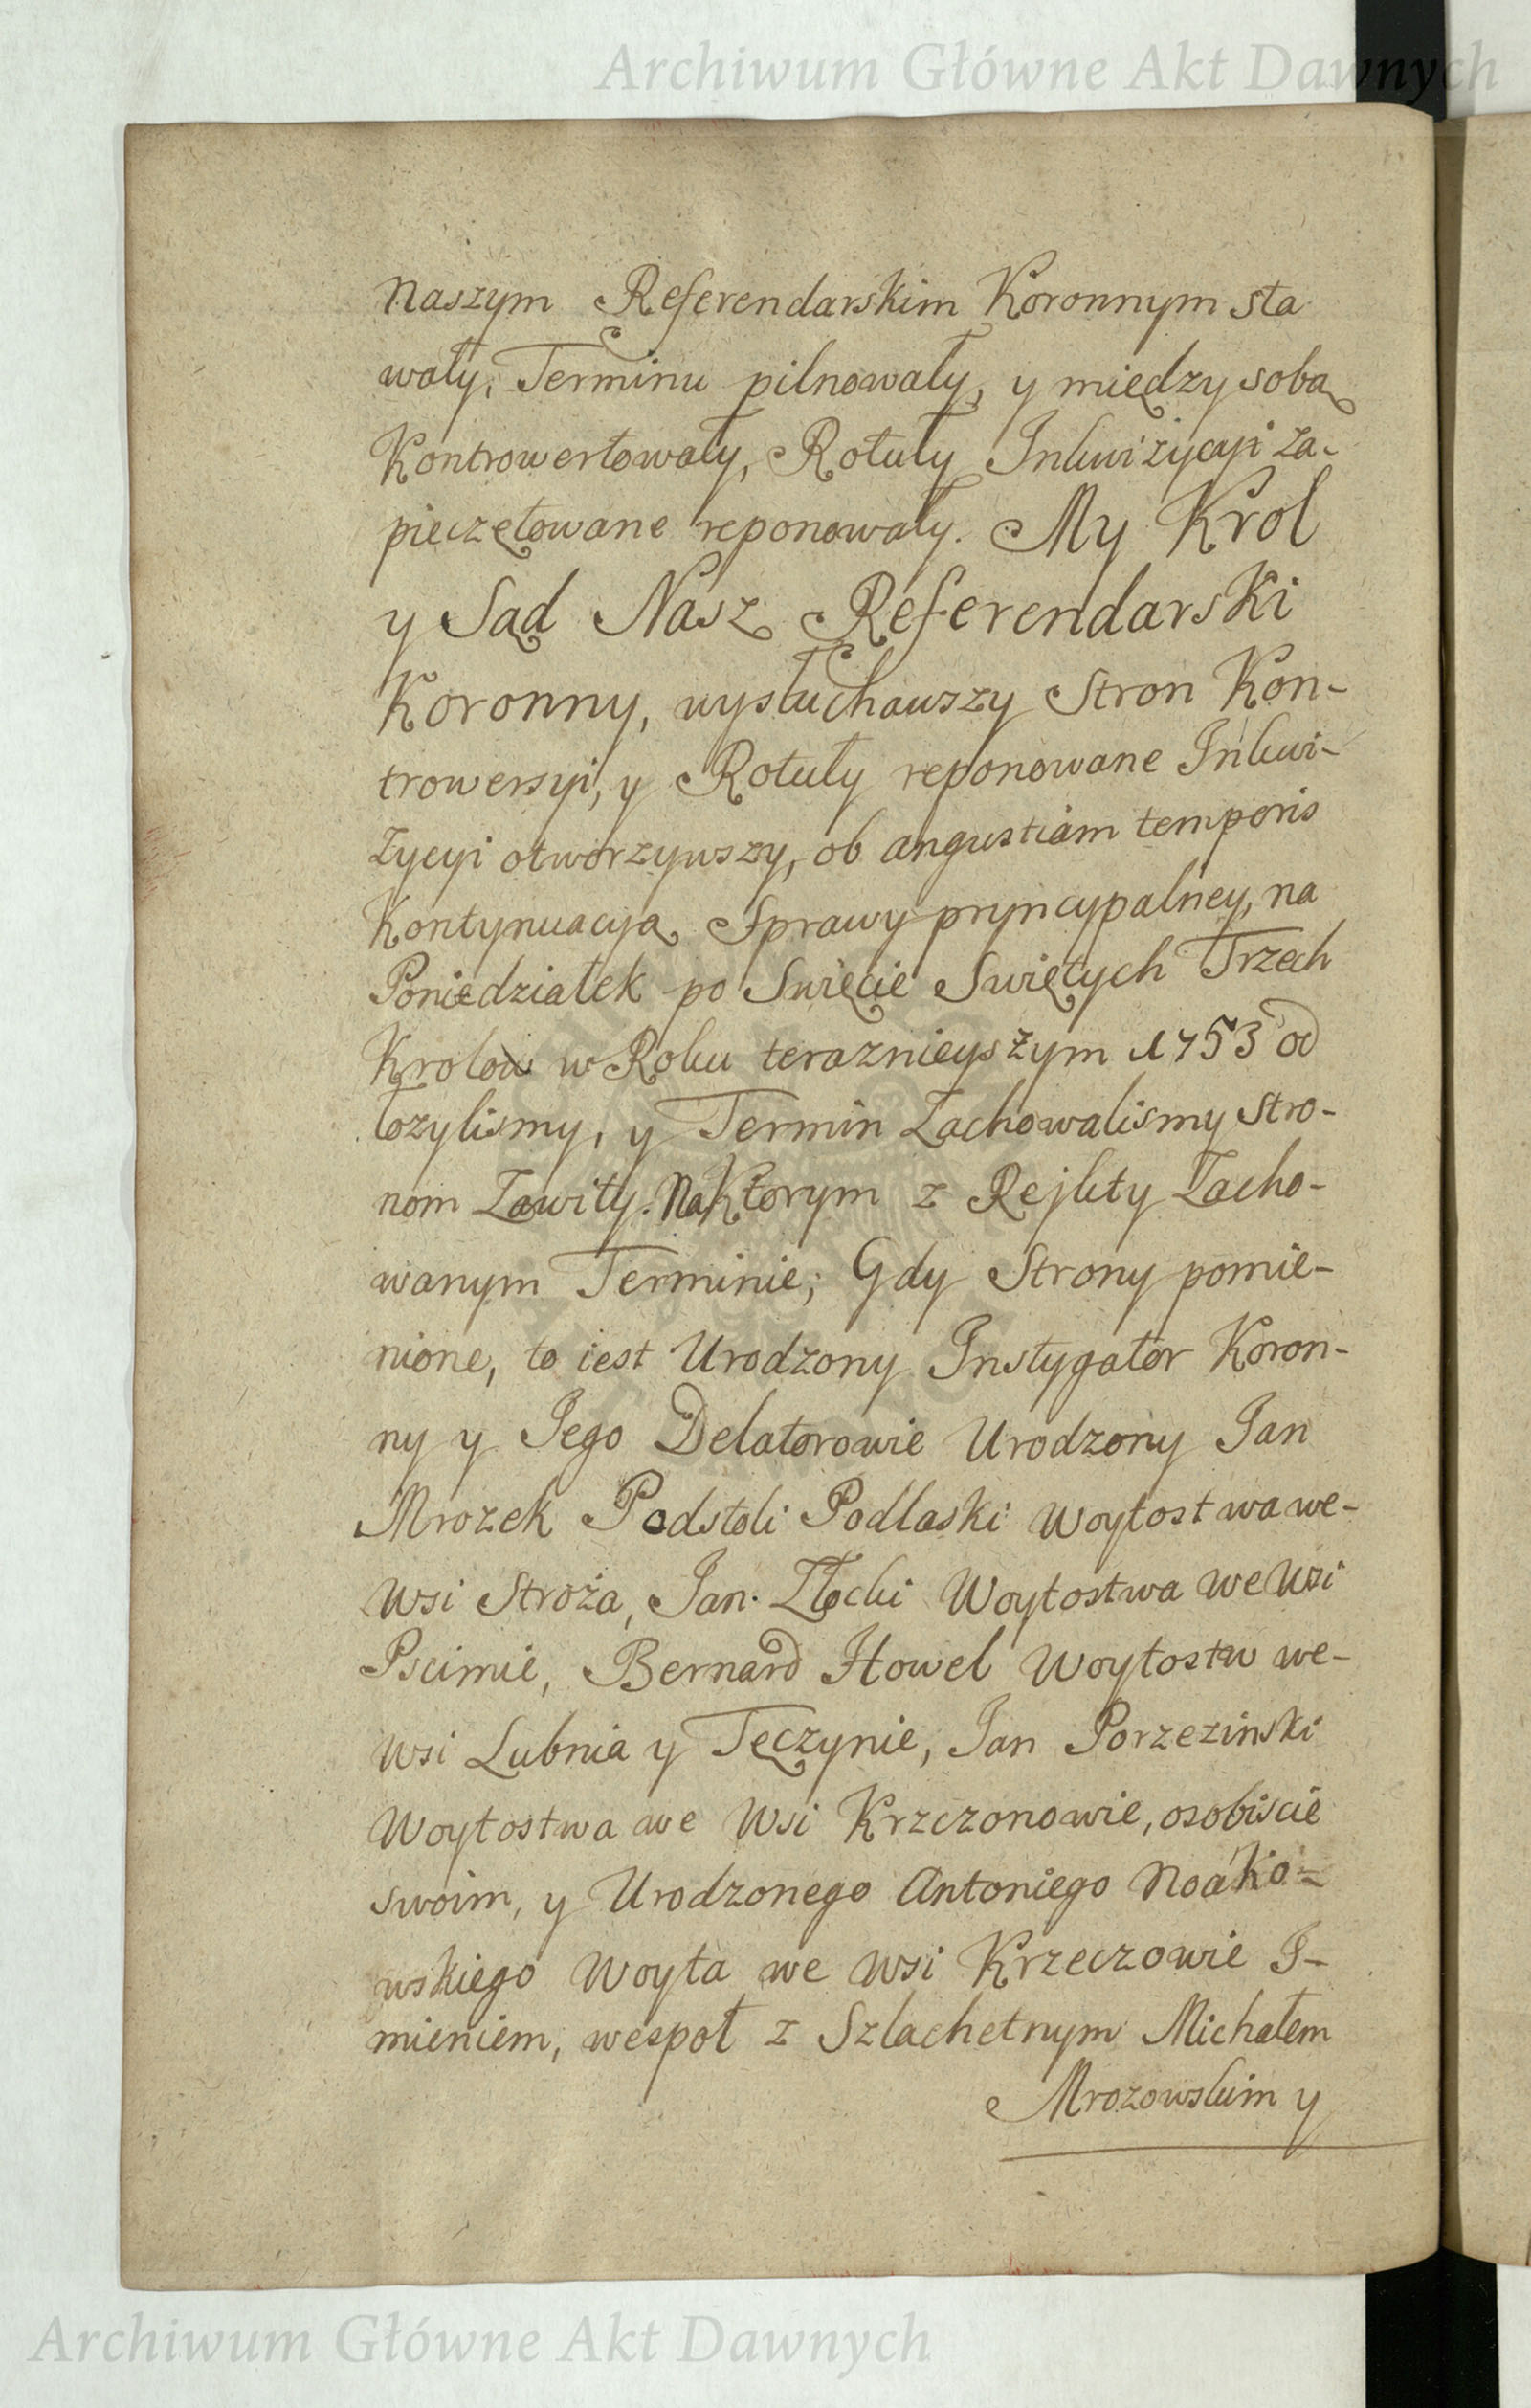 Archiwum Główne Akt Dawnych
Naszym Referendarskim Koronnym sta
wały, Terminu pilnowały, y między sobą
Kontrowertowały, Rotuły Inkwizycyi za-
pieczętowane reponowały. My Krol
y Sąd Nasz Referendarski
Koronny, wysłuchawszy Stron Kon-
trowersyi, y Rotuły reponowane Inkwi-
zycyi otworzywszy, ob angustiam temporis
Kontynuacyją Sprawy pryncypalney, na
Poniedziałek po Swięcie Swiętych Trzech
Krolow w Roku teraznieyszym 1753 od
łozylismy, y Termin Zachowalismy Stro-
nom Zawity. Na Ktorym z Rejekty Zacho-
wanym Terminie; Gdy Strony pomie-
nione, to iest Urodzony Instygator Koron-
ny y Jego Delatorowie Urodzony Jan
Mrozek Podstoli Podlaski Woytostwa we-
Wsi Stroża, Jan Złocki Woytostwa we Wsi
Pscimie, Bernard Howel Woytostw we-
wsi Lubnia y Tęczynie, Jan Porzezinski
Woytostwa we Wsi Krzczonowie, osobiscie
swoim, y Urodzonego Antoniego Noako-
wskiego Woyta we Wsi Krzeczowie I-
mieniem, wespoł z Szlachetnym Michałem
Mrozowskim y
Archiwum Główne Akt Dawnych